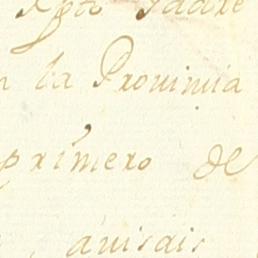 Xpto Padre
la Provincia
primero de
auisais